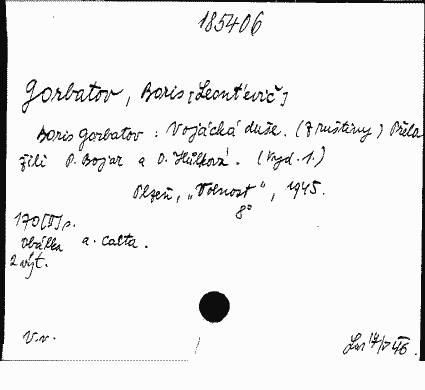 185406
Gorbatov, Boris [Leont'evič]
Boris Gorbatov: Vojácká duše. (Z ruštiny) Přelo
žili P. Bojar a O. Hůlková. (Vyd. 1.)
Plzeň, „Volnost“, 1945.
8°
170 [II] s.
Obálka a. Calta.
2 výt.
V.v.
46.